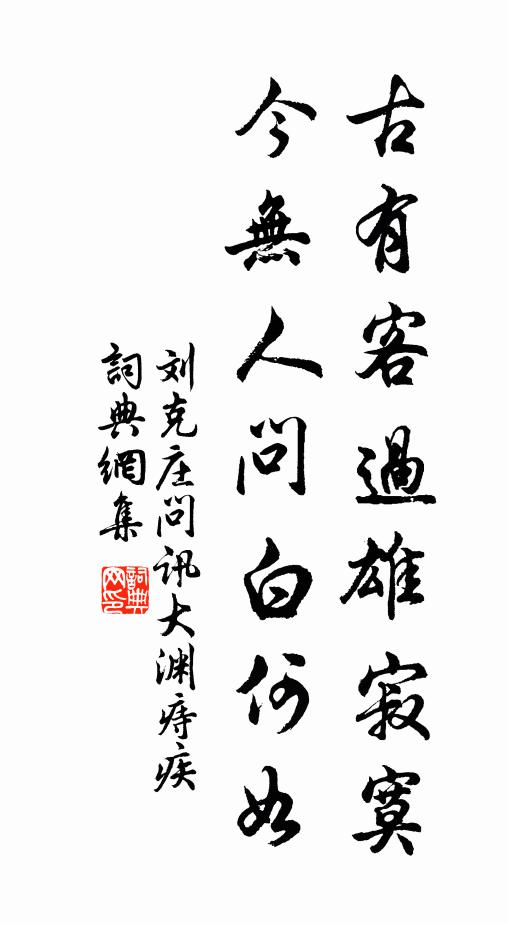 古有客過雄寂寞
今無人問白何如
刘克庄問訊大渊痔疾
詞典網集
詞典网印